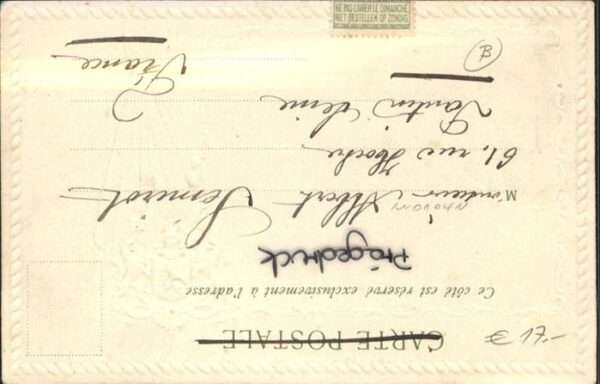 CARTE POSTALE
Ce côté est réservé exclusivement à l'adresse
Prägedruck
Monsieur Albert
61, rue Hoche
Pantin Seine
France
B
NE PAS LIVRER LE DIMANCHE
NIET BESTELLEN OP ZONDAG